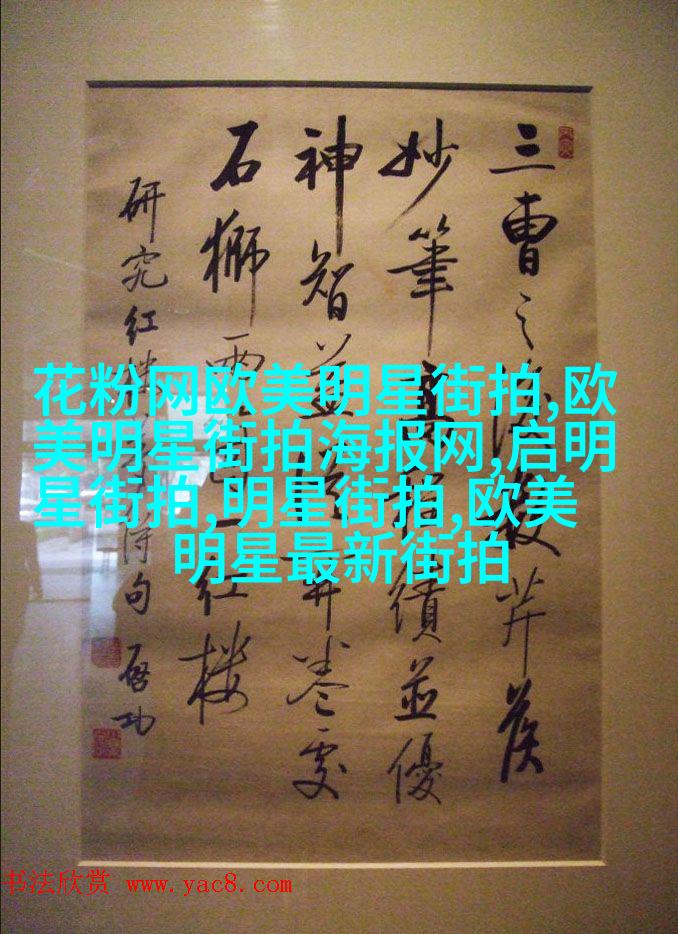 三曹之後數芹侯
妙筆績並優
神智益開卷處
石獅一红楼
研究红楼得句 啓功
花粉网欧美明星街拍,欧
美明星街拍海报网,启明
星街拍,明星街拍,欧美
明星最新街拍
书法欣赏 www.yac8.com